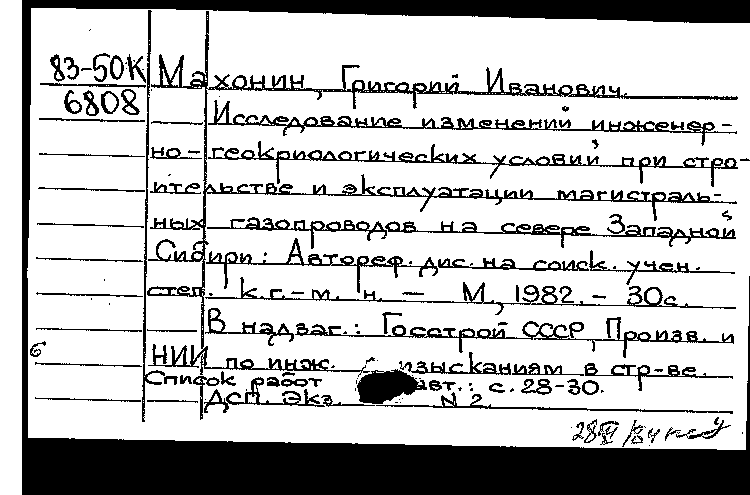 83-50К Махонин, Григорий Иванович.
6808 Исследование изменений инженер-
но-геокриологических условий при стро-
ительстве и эксплуатации магистраль-
ных газопроводов на севере Западной
Сибири: Автореф. дис. на соиск. учен.
степ. к.г.-м. н. — М., 1982. - 30с.
В надзаг.: Госстрой СССР, Произв. и
6 НИИ по инж. изысканиям в стр-ве.
Список работ авт.: с. 28-30.
Дсп. Экз. N 2.